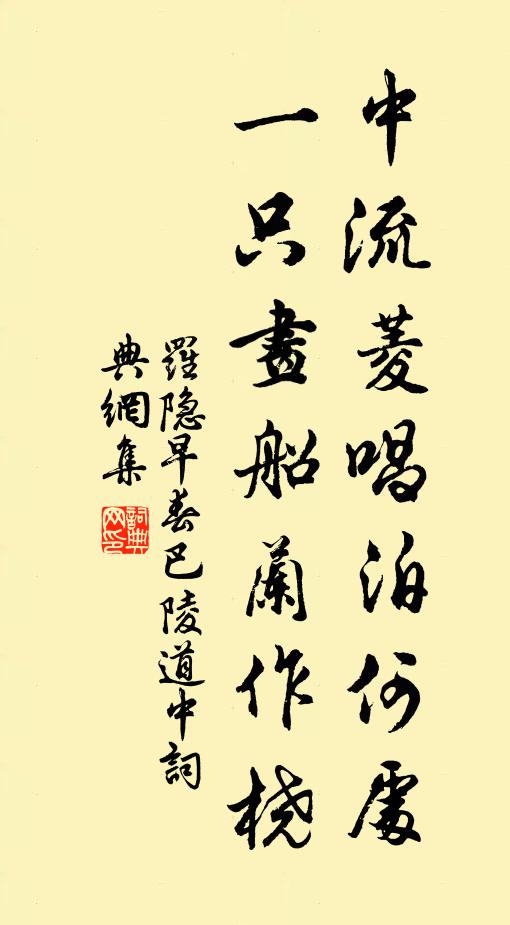 中流菱唱泊何處
一只畫船蘭作橈
羅隐早春巴陵道中詞
典網集
詞典
网印